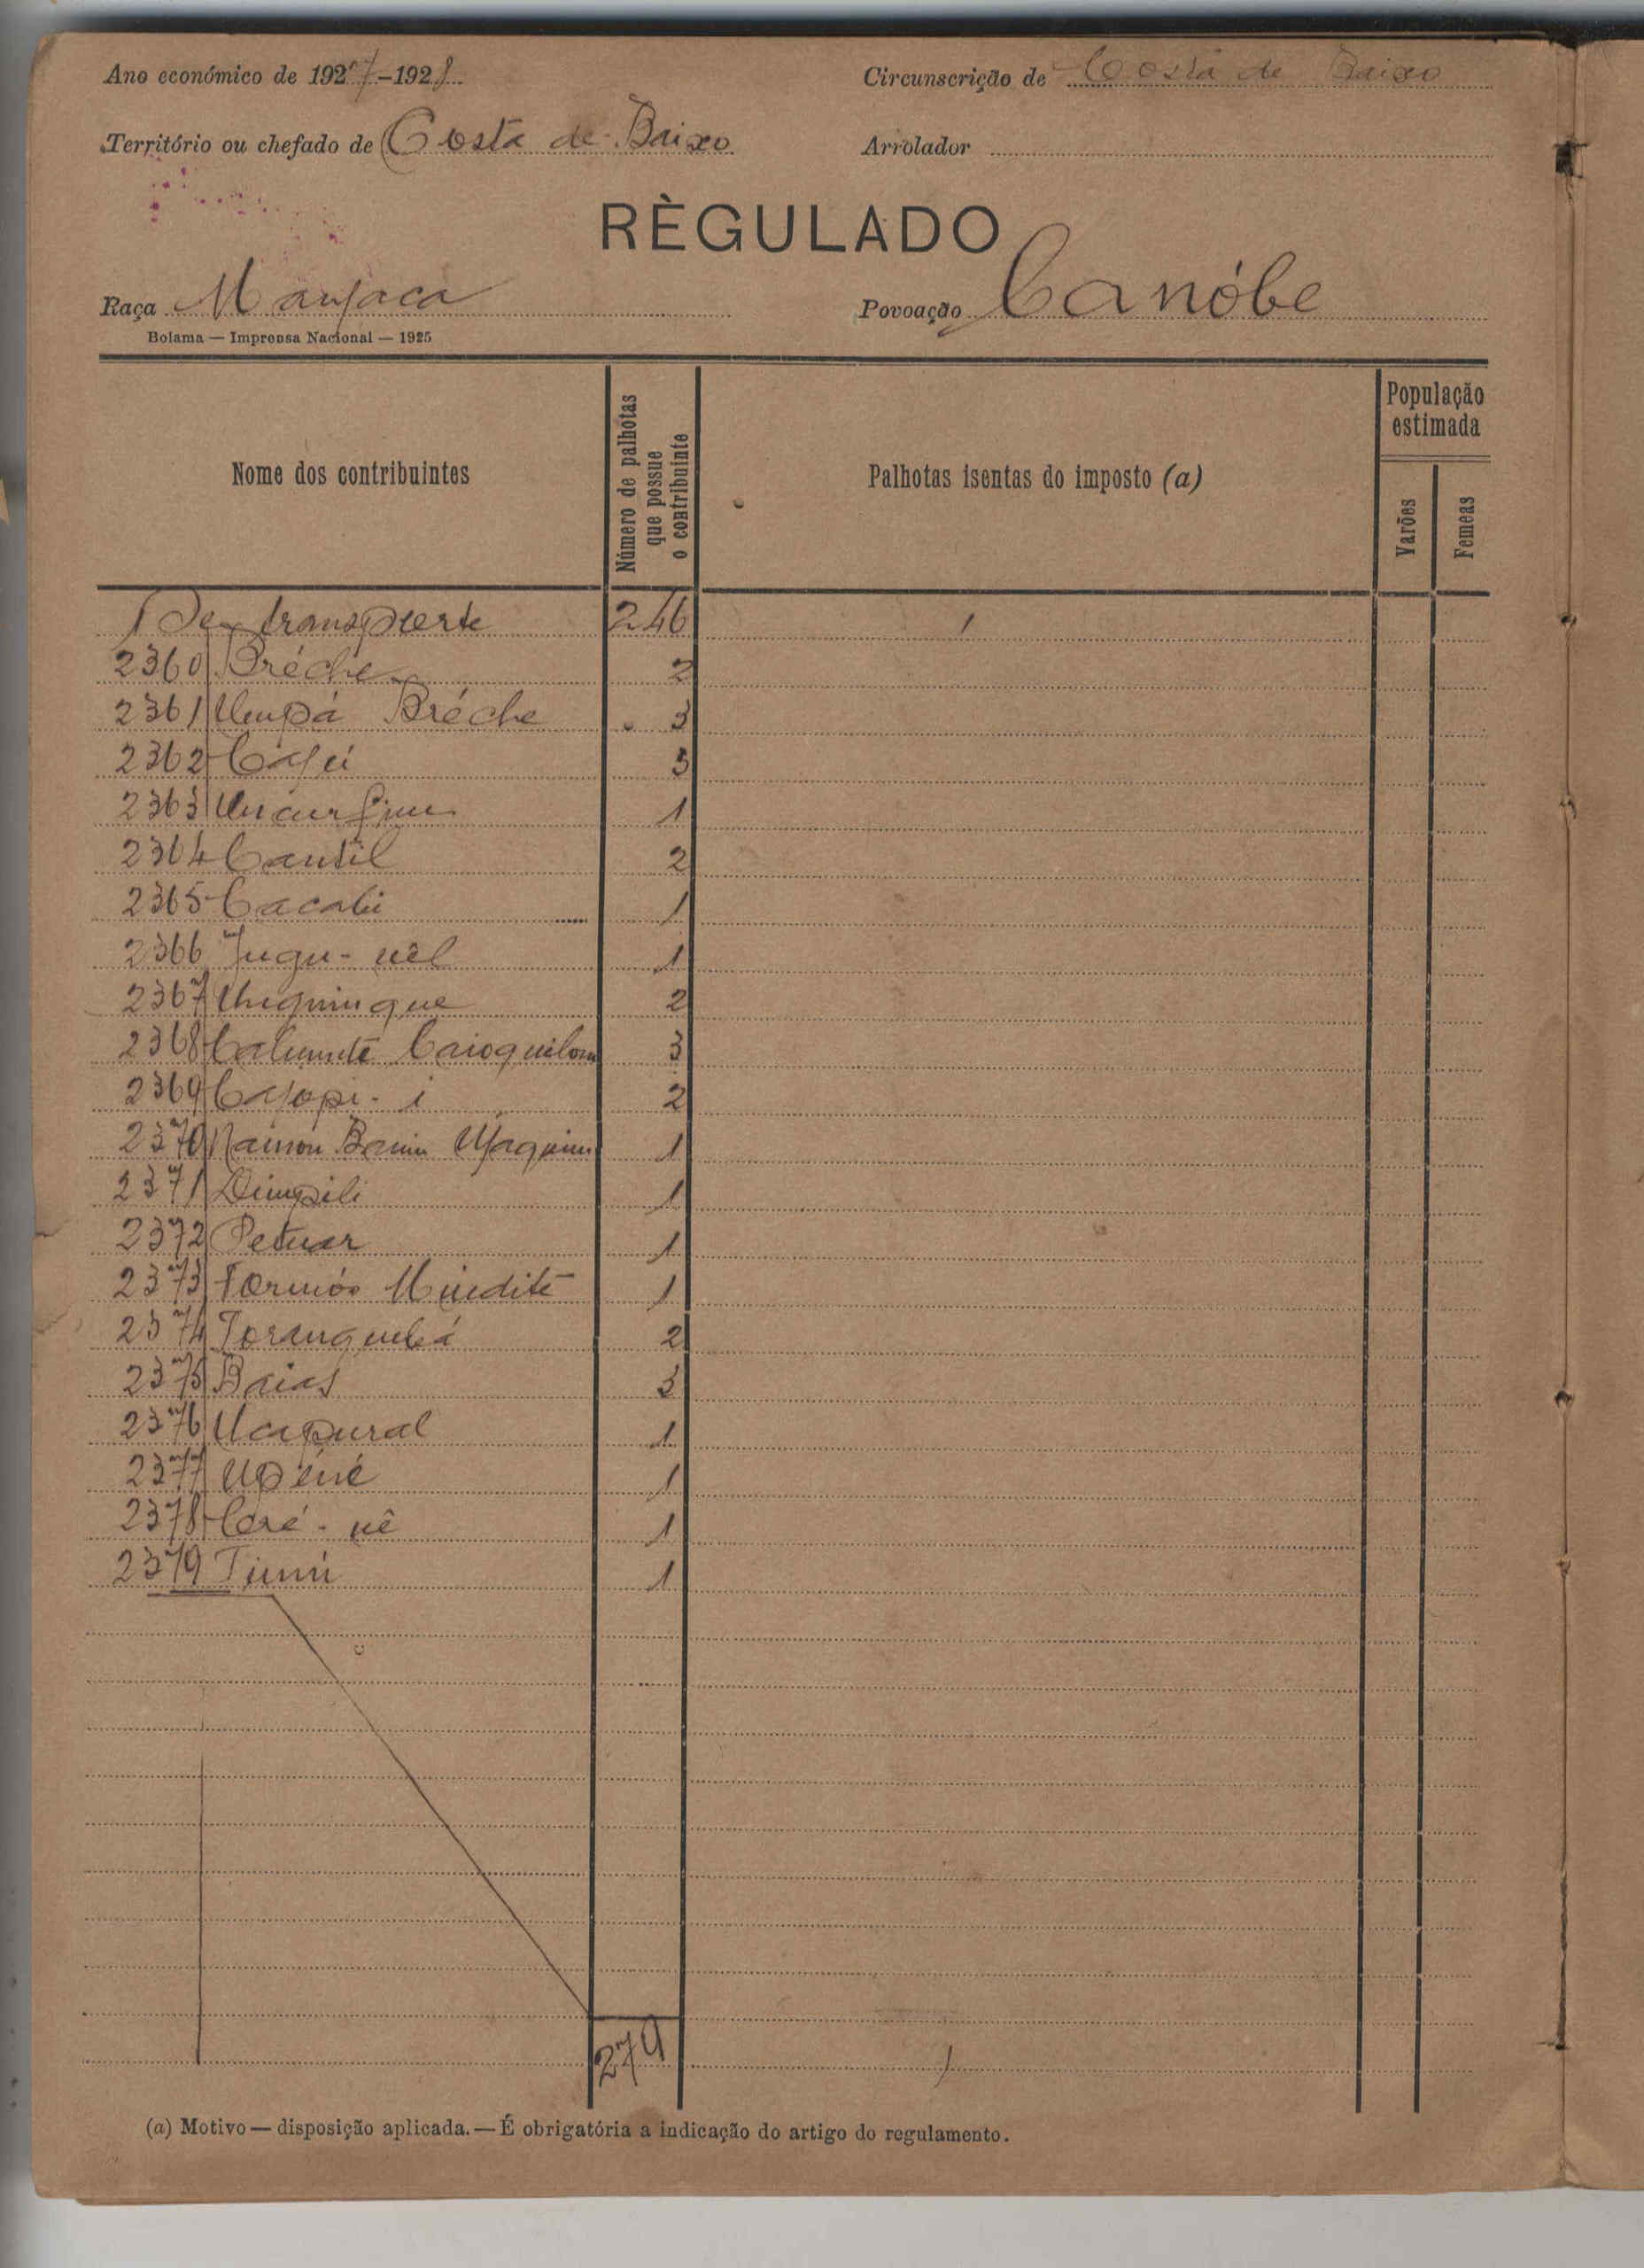 Ano económico de 1927-1928
Circunscrição de Costa de Baixo
Território ou chefado de Costa de Baixo
Arrolador
RÈGULADO
Raça Manjaca
Povoação Canóbe
Bolama — Imprensa Nacional — 1925
Nome dos contribuintes
Número de palhotas que possue o contribuinte
Palhotas isentas do imposto (a)
População estimada
Varões
Femeas
De transporte 246 1
2360 Bréche 2
2361 Umpá Bréche 3
2362 Cajú 3
2363 1
2364 Cantil 2
2365 Cacabi 1
2366 Jugu-uêl 1
2367 Uhiquinque 2
2368 3
2369 Cajopi-i 2
2370 1
2371 Dimpili 1
2372 Petuar 1
2373 1
2374 Toranquebá 2
2375 Baias 3
2376 Ucapural 1
2377 Upéné 1
2378 Caré-uê 1
2379 1
279 1
(a) Motivo — disposição aplicada. — É obrigatória a indicação do artigo do regulamento.